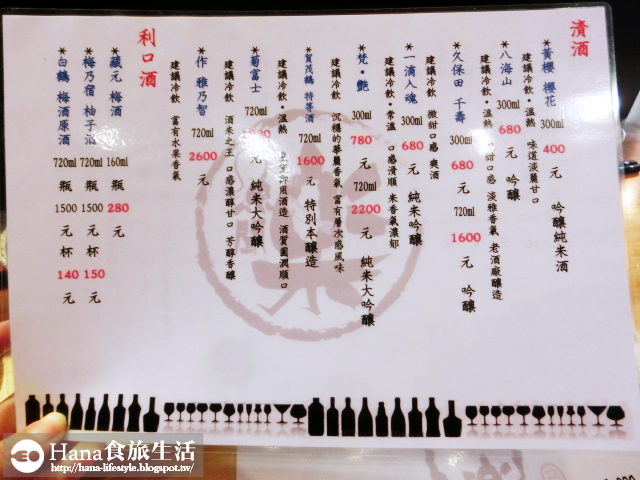 清酒
*黃櫻 櫻花 300ml 400 元 吟釀純米酒
建議冷飲・溫熱 味道淡麗甘口
*八海山 300ml 680 元 吟釀
建議冷飲・溫熱 甜口感 淡雅香氣 老酒廠釀造
*久保田 千壽 300ml 680 元 720ml 1600 元 吟釀
建議冷飲 微甜口感 爽酒
*一滴入魂 300ml 680 元 純米吟釀
建議冷飲・常溫 口感滑順 米香氣濃郁
*梵・艷 300ml 780 元 720ml 2200 元 純米大吟釀
建議冷飲 沉穩的華麗香氣 富有層次感風味
*賀茂鶴 特等酒 720ml 1600 元 特別本釀造
建議冷飲・溫熱 皇室御用酒造 酒質圓潤順口
*菊富士 720ml 元 純米大吟釀
建議冷飲 酒米之王 口感濃醇甘口 芳醇香釀
*作 雅乃智 720ml 2600 元
建議冷飲 富有水果香氣
利口酒
*藏元 梅酒 160ml 280 元
*梅乃宿 柚子酒 720ml 瓶 1500 元 杯 150 元
*白鶴 梅酒原酒 720ml 瓶 1500 元 杯 140 元
樂
Hana食旅生活
http://hana-lifestyle.blogspot.tw/